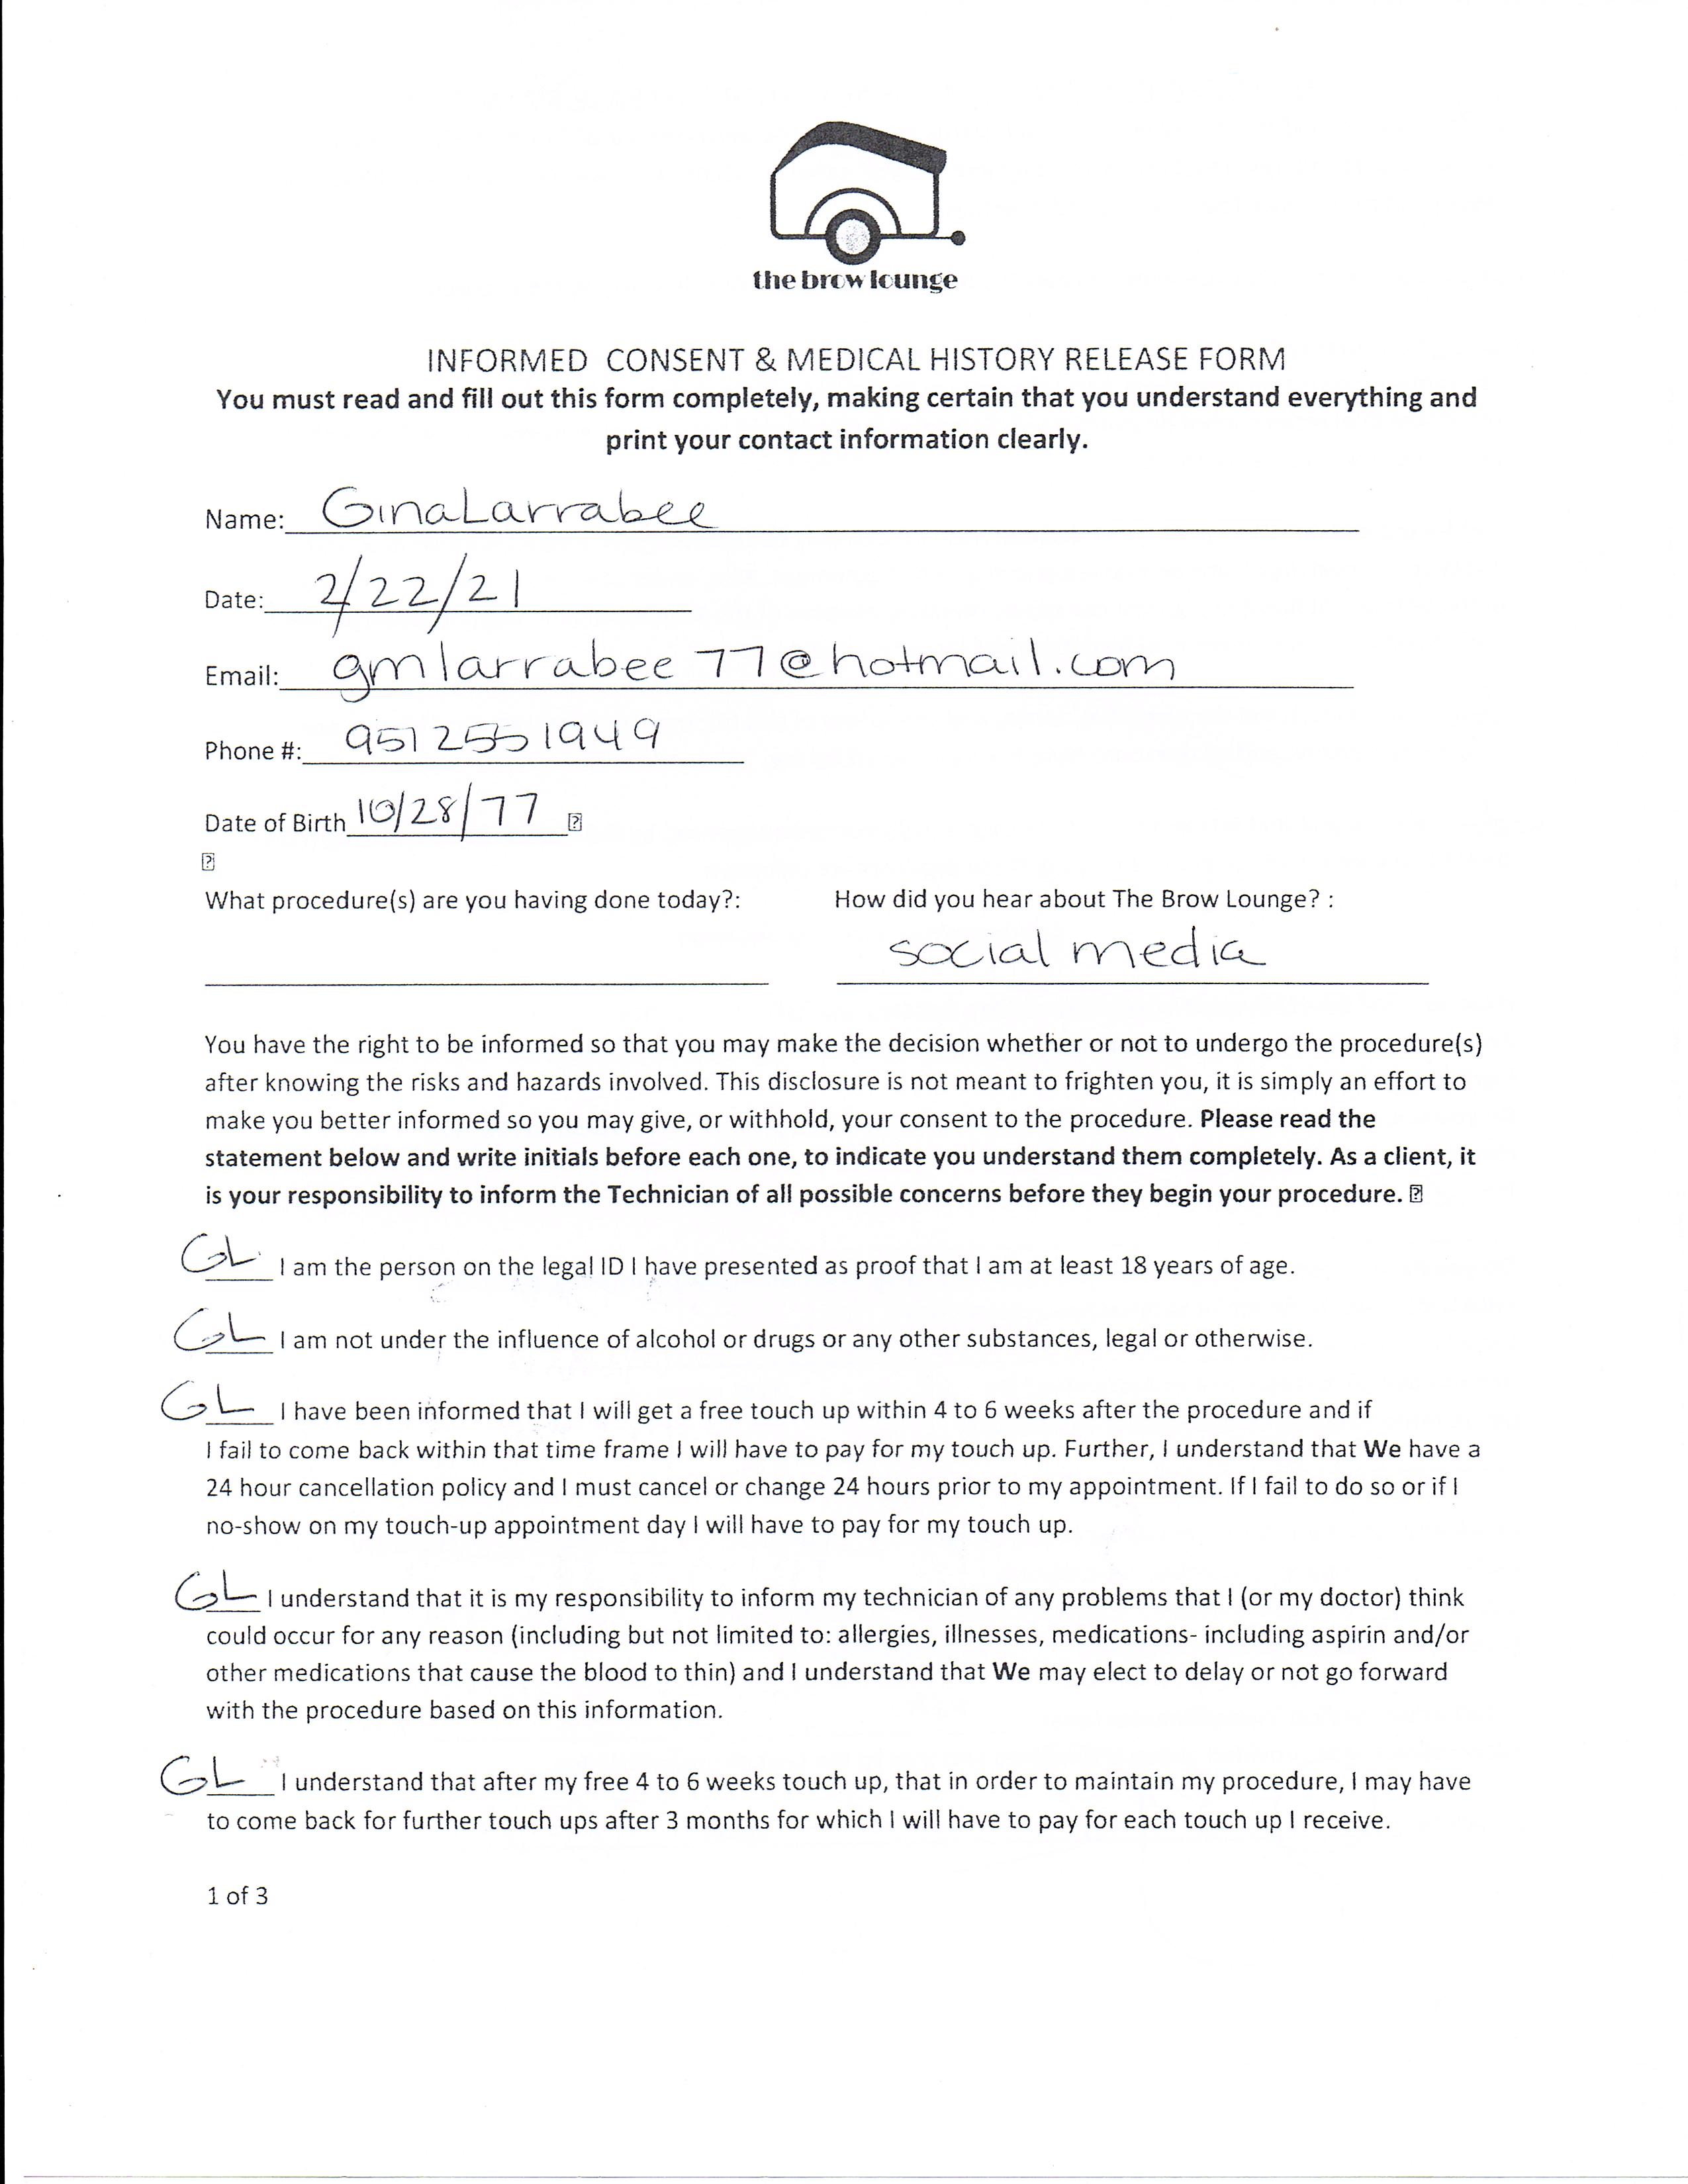 the brow lounge
INFORMED CONSENT & MEDICAL HISTORY RELEASE FORM
You must read and fill out this form completely, making certain that you understand everything and
print your contact information clearly.
Name: Gina Larrabee
Date: 2/22/21
Email: gmlarrabee77@hotmail.com
Phone #: 951 255 1949
Date of Birth 10/28/77
What procedure(s) are you having done today?: How did you hear about The Brow Lounge? :
social media
You have the right to be informed so that you may make the decision whether or not to undergo the procedure(s)
after knowing the risks and hazards involved. This disclosure is not meant to frighten you, it is simply an effort to
make you better informed so you may give, or withhold, your consent to the procedure. Please read the
statement below and write initials before each one, to indicate you understand them completely. As a client, it
is your responsibility to inform the Technician of all possible concerns before they begin your procedure.
GL I am the person on the legal ID I have presented as proof that I am at least 18 years of age.
GL I am not under the influence of alcohol or drugs or any other substances, legal or otherwise.
GL I have been informed that I will get a free touch up within 4 to 6 weeks after the procedure and if
I fail to come back within that time frame I will have to pay for my touch up. Further, I understand that We have a
24 hour cancellation policy and I must cancel or change 24 hours prior to my appointment. If I fail to do so or if I
no-show on my touch-up appointment day I will have to pay for my touch up.
GL I understand that it is my responsibility to inform my technician of any problems that I (or my doctor) think
could occur for any reason (including but not limited to: allergies, illnesses, medications- including aspirin and/or
other medications that cause the blood to thin) and I understand that We may elect to delay or not go forward
with the procedure based on this information.
GL I understand that after my free 4 to 6 weeks touch up, that in order to maintain my procedure, I may have
to come back for further touch ups after 3 months for which I will have to pay for each touch up I receive.
1 of 3